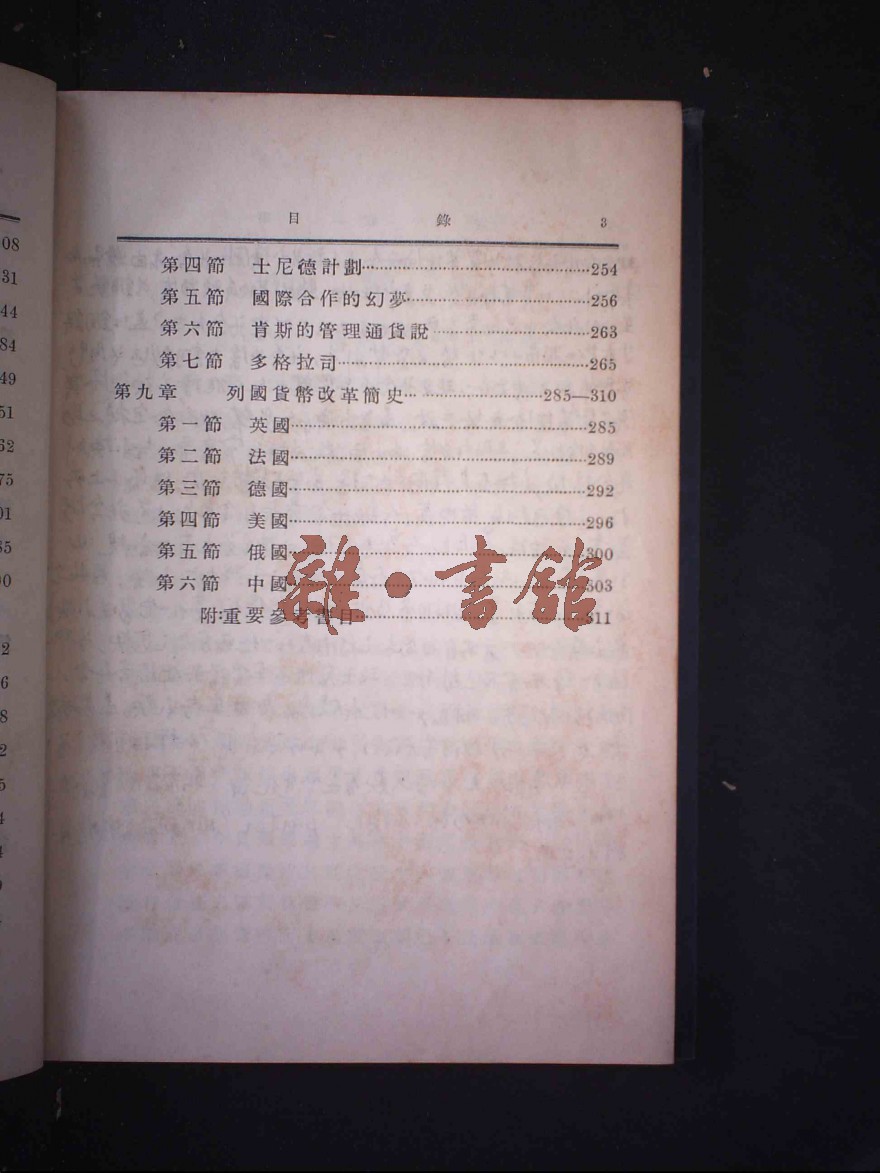 目 錄 3
第四節 士尼德計劃……254
第五節 國際合作的幻夢……256
第六節 肯斯的管理通貨說……263
第七節 多格拉司……265
第九章 列國貨幣改革簡史……285—310
第一節 英國……285
第二節 法國……289
第三節 德國……292
第四節 美國……296
第五節 俄國……300
第六節 中國……303
附:重要參考書目……311
雜·書館
08
31
44
84
49
51
62
75
01
35
00
2
6
8
2
5
4